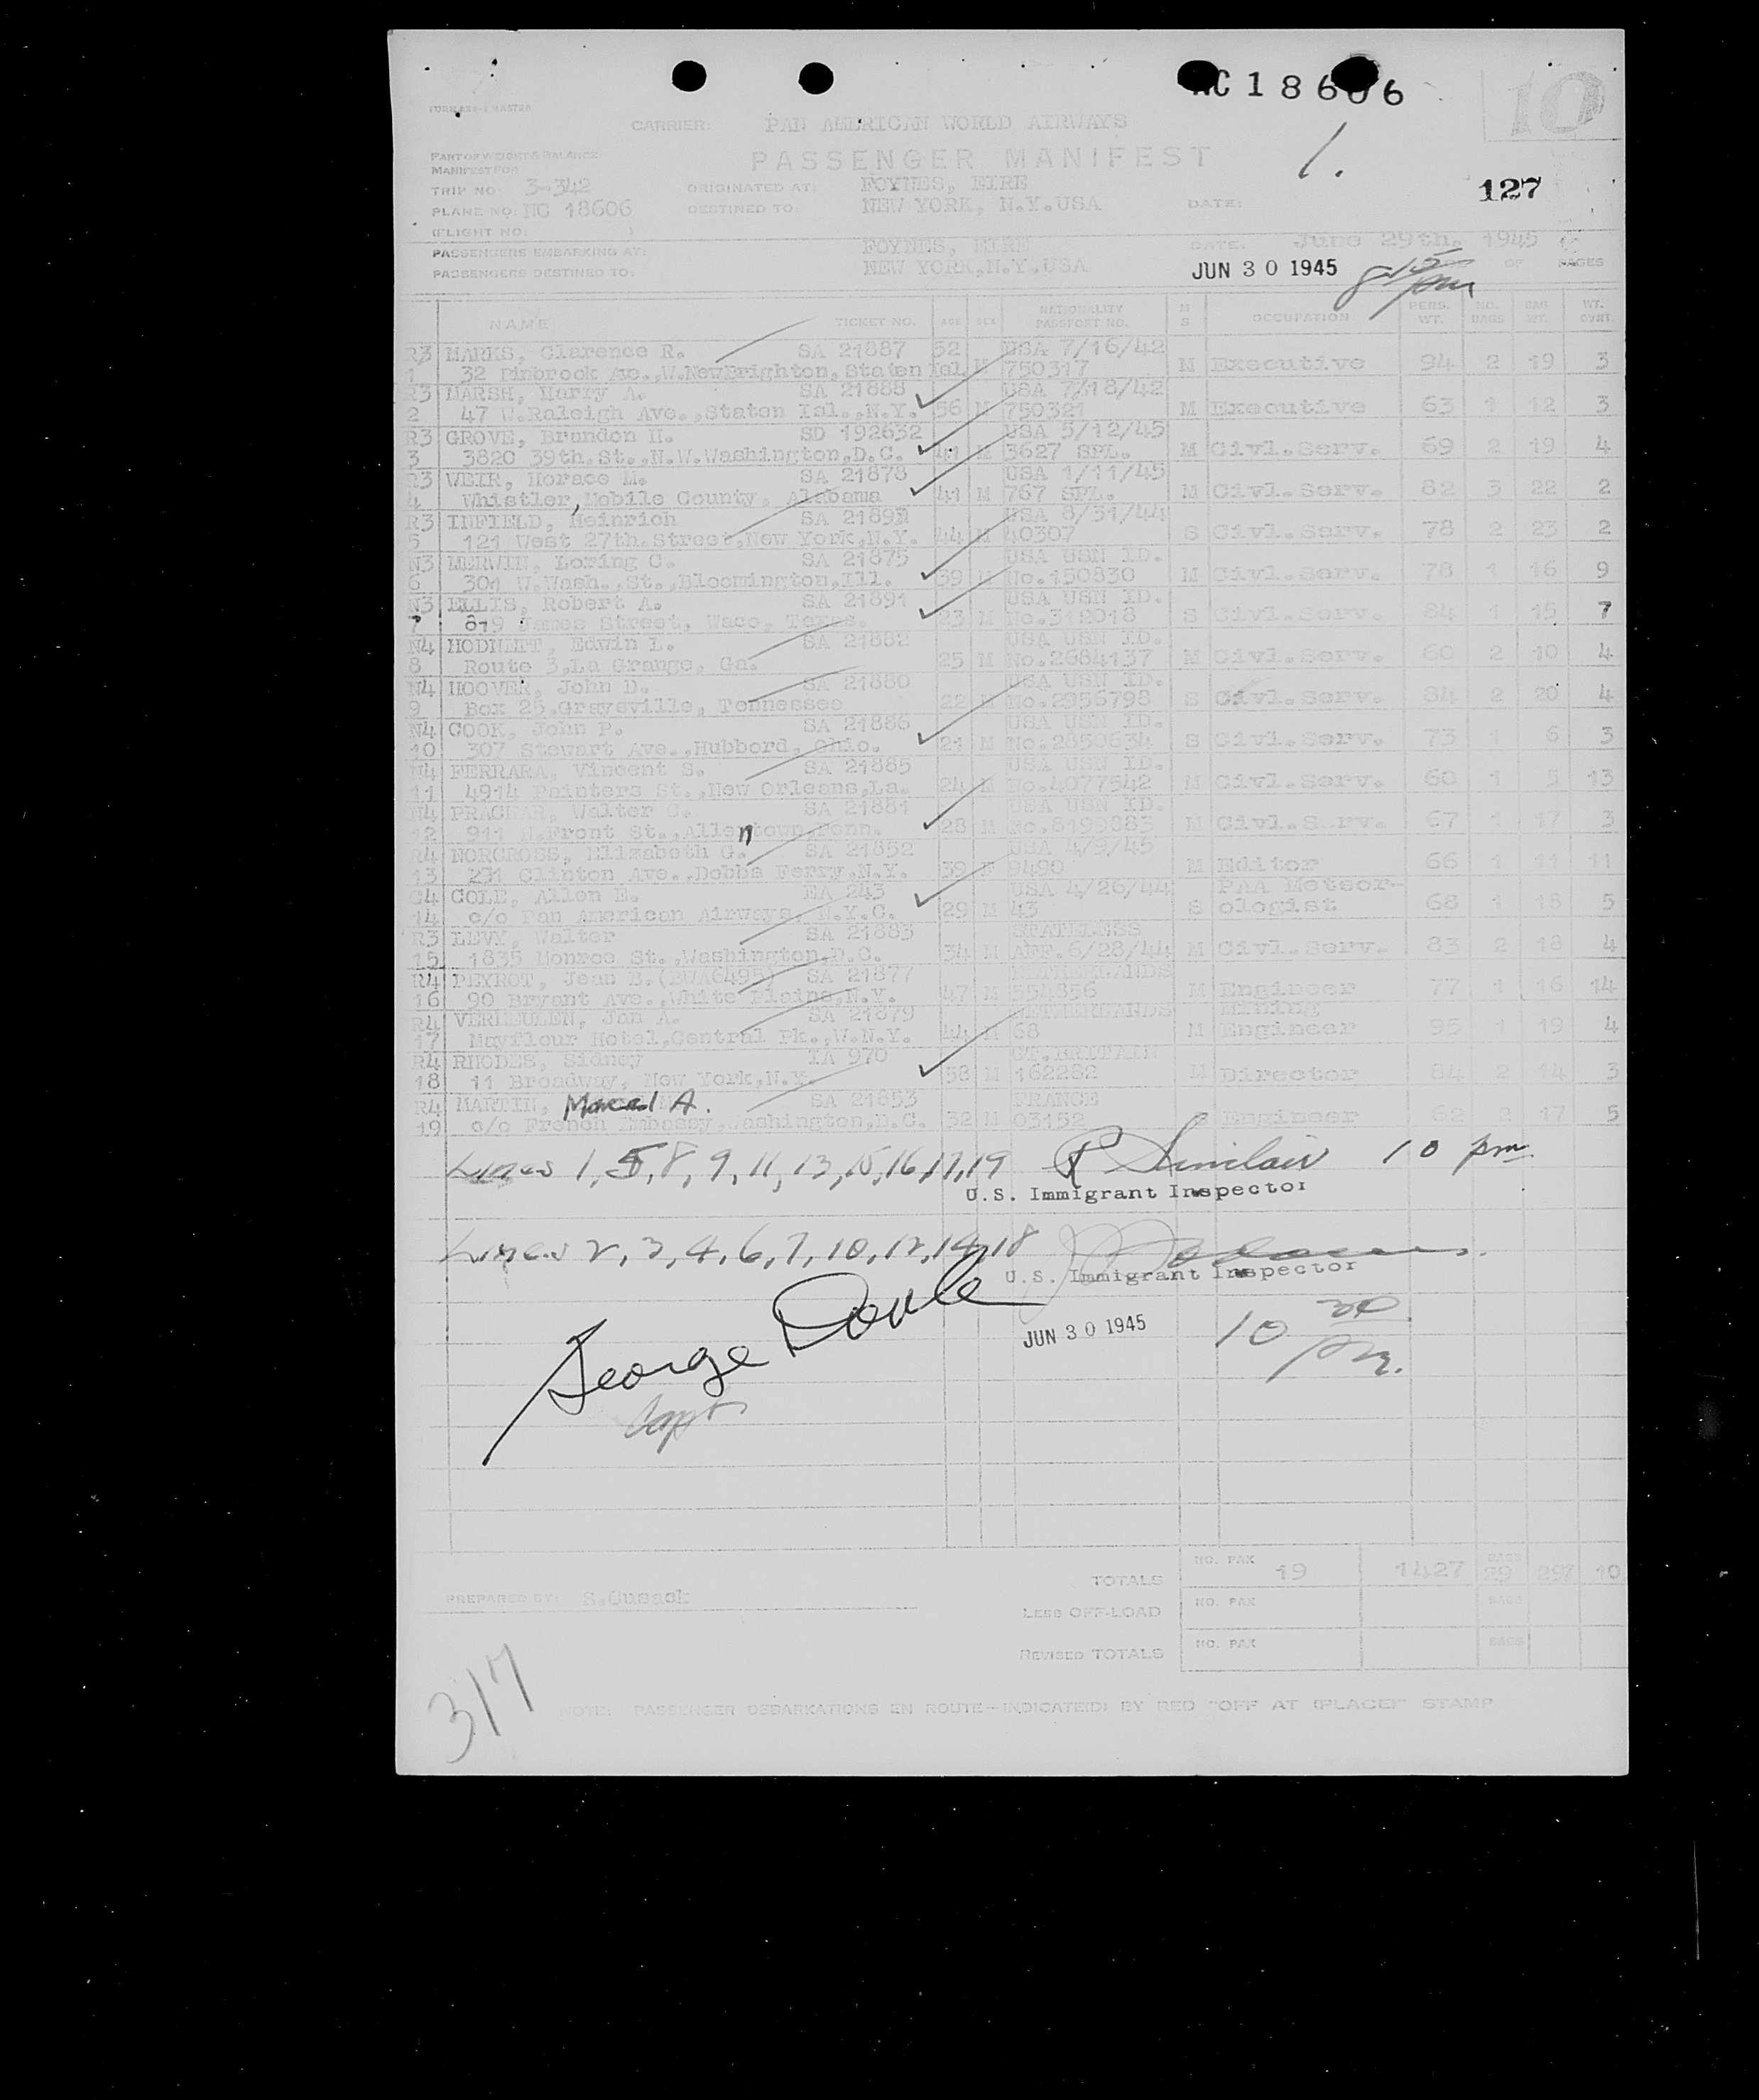 NC 18606
10
FORM MASTER
CARRIER: PAN AMERICAN WORLD AIRWAYS
PASSENGER MANIFEST
1.
PART OF WEIGHT & BALANCE
MANIFEST FOR
TRIP NO: 3-342 ORIGINATED AT: FOYNES, EIRE
127
PLANE NO: NC 18606 DESTINED TO: NEW YORK, N.Y. USA DATE:
(FLIGHT NO: )
PASSENGERS EMBARKING AT: FOYNES, EIRE DATE: June 29th. 1945
PASSENGERS DESTINED TO: NEW YORK, N.Y. USA JUN 30 1945 815 pm OF PAGES
NAME TICKET NO. AGE SEX NATIONALITY PASSPORT NO. M S OCCUPATION PERS. WT. NO. BAGS BAG WT. WT. OVWT.
R3 MARKS, Clarence R. SA 21887 52 USA 7/16/42
1 32 Pinbrook Av., W.NewBrighton, Staten Isl. M 750317 M Executive 94 2 19 3
R3 MARSH, Harry A. SA 21888 USA 7/18/42
2 47 W.Raleigh Ave., Staten Isl., N.Y. 56 M 750321 M Executive 63 1 12 3
R3 GROVE, Brandon H. SD 192632 USA 5/12/45
3 3820 39th.St., N.W.Washington, D.C. 41 M 3627 SPL. M Civl.Serv. 69 2 19 4
R3 WEIR, Horace M. SA 21878 USA 1/11/45
4 Whistler, Mobile County, Alabama 41 M 767 SPL. M Civl.Serv. 82 3 22 2
R3 INFIELD, Heinrich SA 2189 USA 8/31/44
5 121 West 27th.Street, New York, N.Y. 44 M 40307 S Civl.Serv. 78 2 23 2
N3 MERWIN, Loring C. SA 21875 USA USN ID.
6 301 W.Wash., St., Bloomington, Ill. 39 M No.150830 M Civl.Serv. 78 1 16 9
N3 ELLIS, Robert A. SA 21891 USA USN ID.
7 819 James Street, Waco, Texas. 23 M No.312018 S Civl.Serv. 84 1 15 7
N4 HODNETT, Edwin L. SA 21882 USA USN ID.
8 Route 3, La Grange, Ga. 25 M No.2684137 M Civl.Serv. 60 2 10 4
N4 HOOVER, John D. SA 21880 USA USN ID.
9 Box 25, Graysville, Tennessee 22 M No.2956798 S Civl.Serv. 84 2 20 4
N4 COOK, John P. SA 21886 USA USN ID.
10 307 Stewart Ave., Hubbord, Ohio. 21 M No.2850634 S Civl.Serv. 73 1 6 3
N4 FERRARA, Vincent S. SA 21885 USA USN ID.
11 4914 Painters St., New Orleans, La. 24 M No.4077542 M Civl.Serv. 60 1 5 13
N4 PRACHAR, Walter C. SA 21881 USA USN ID.
12 911 N.Front St., Allentown, Penn. 28 M No.8199883 M Civl.Serv. 67 1 17 3
R4 NORCROSS, Elizabeth G. SA 21852 USA 4/9/45
13 231 Clinton Ave., Dobbs Ferry, N.Y. 39 F 9490 M Editor 66 1 11 11
C4 COLE, Allen E. EA 243 USA 4/26/44 PAA Meteor-
14 c/o Pan American Airways, N.Y.C. 29 M 43 S ologist 68 1 18 5
R3 LEVY, Walter SA 21883 STATELESS
15 1835 Monroe St., Washington, D.C. 34 M AFF.6/28/44 M Civl.Serv. 83 2 18 4
R4 PEYROT, Jean E. SA 21877 NETHERLANDS
16 90 Bryant Ave., White Plains, N.Y. 47 M 554856 M Engineer 77 1 16 14
R4 VERHEUGEN, Jan A. SA 21879 NETHERLANDS Mining
17 Mayflour Hotel, Central Pk., W.N.Y. 44 M 68 M Engineer 95 1 19 4
R4 RHODES, Sidney IA 970 GT.BRITAIN
18 11 Broadway, New York, N.Y. 58 M 162282 M Director 84 2 14 3
R4 MARTIN, Marcel A. SA 21853 FRANCE
19 c/o French Embassy, Washington, D.C. 32 M 03152 S Engineer 62 2 17 5
Lines 1, 5, 8, 9, 11, 13, 15, 16, 17, 19 R Sinclair 10 pm.
U.S. Immigrant Inspector
Lines 2, 3, 4, 6, 7, 10, 12, 14, 18
U.S. Immigrant Inspector
George Doyle
Capt
JUN 30 1945 10 30 pm.
TOTALS NO. PAX 19 1427 BAGS 29 297 10
PREPARED BY: S.Cusack
LESS OFF-LOAD NO. PAX BAGS
REVISED TOTALS NO. PAX BAGS
317
NOTE: PASSENGER DEBARKATIONS EN ROUTE—INDICATE(D) BY RED "OFF AT (PLACE)" STAMP